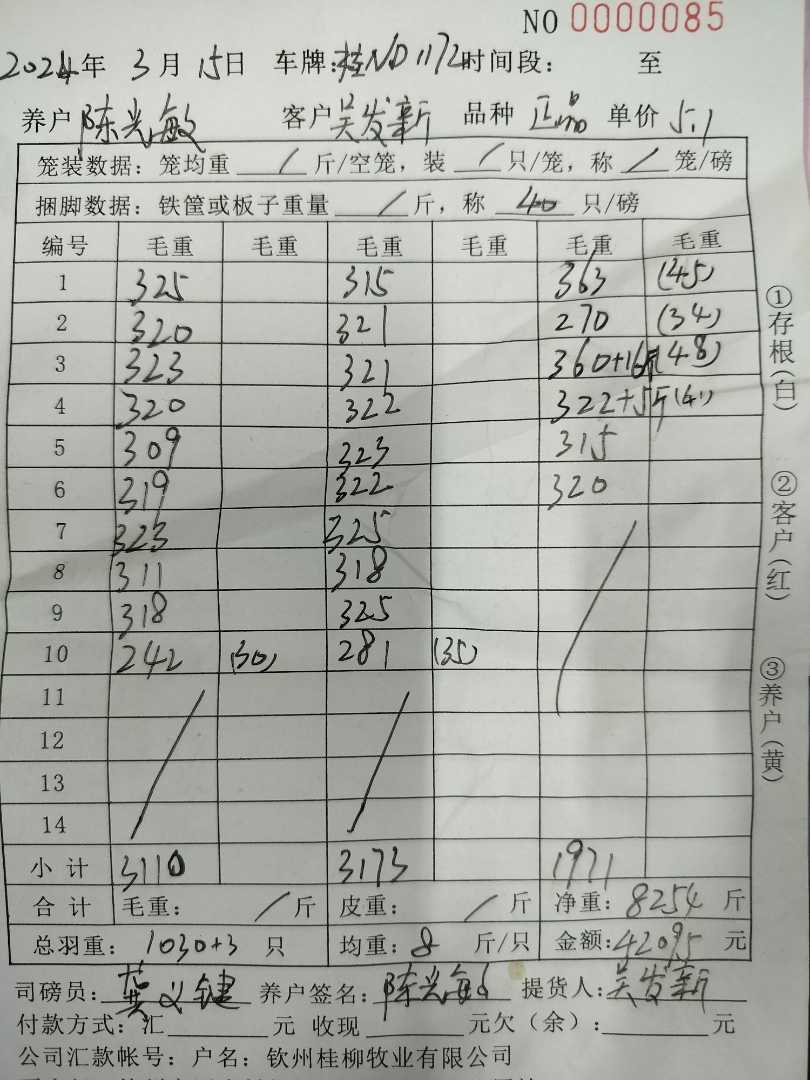 NO 0000085
2024年 3月 15日 车牌:桂ND1172 时间段: 至
养户 陈光敏 客户 吴发新 品种 正品 单价 5.1
笼装数据: 笼均重 / 斤/空笼, 装 / 只/笼, 称 / 笼/磅
捆脚数据: 铁筐或板子重量 / 斤, 称 40 只/磅
编号 毛重 毛重 毛重 毛重 毛重 毛重
1 325 315 363 (45)
2 320 321 270 (34)
3 323 321 360+16斤(48)
4 320 322 322+5斤(41)
5 309 323 315
6 319 322 320
7 323 325
8 311 318
9 318 325
10 242 (30) 281 (35)
11
12
13
14
小计 3110 3173 1971
合计 毛重: / 斤 皮重: / 斤 净重: 8254 斤
总羽重: 1030+3 只 均重: 8 斤/只 金额: 42095 元
司磅员: 龚义键 养户签名: 陈光敏 提货人: 吴发新
付款方式: 汇 元 收现 元欠(余): 元
公司汇款帐号: 户名: 钦州桂柳牧业有限公司
①存根(白)
②客户(红)
③养户(黄)